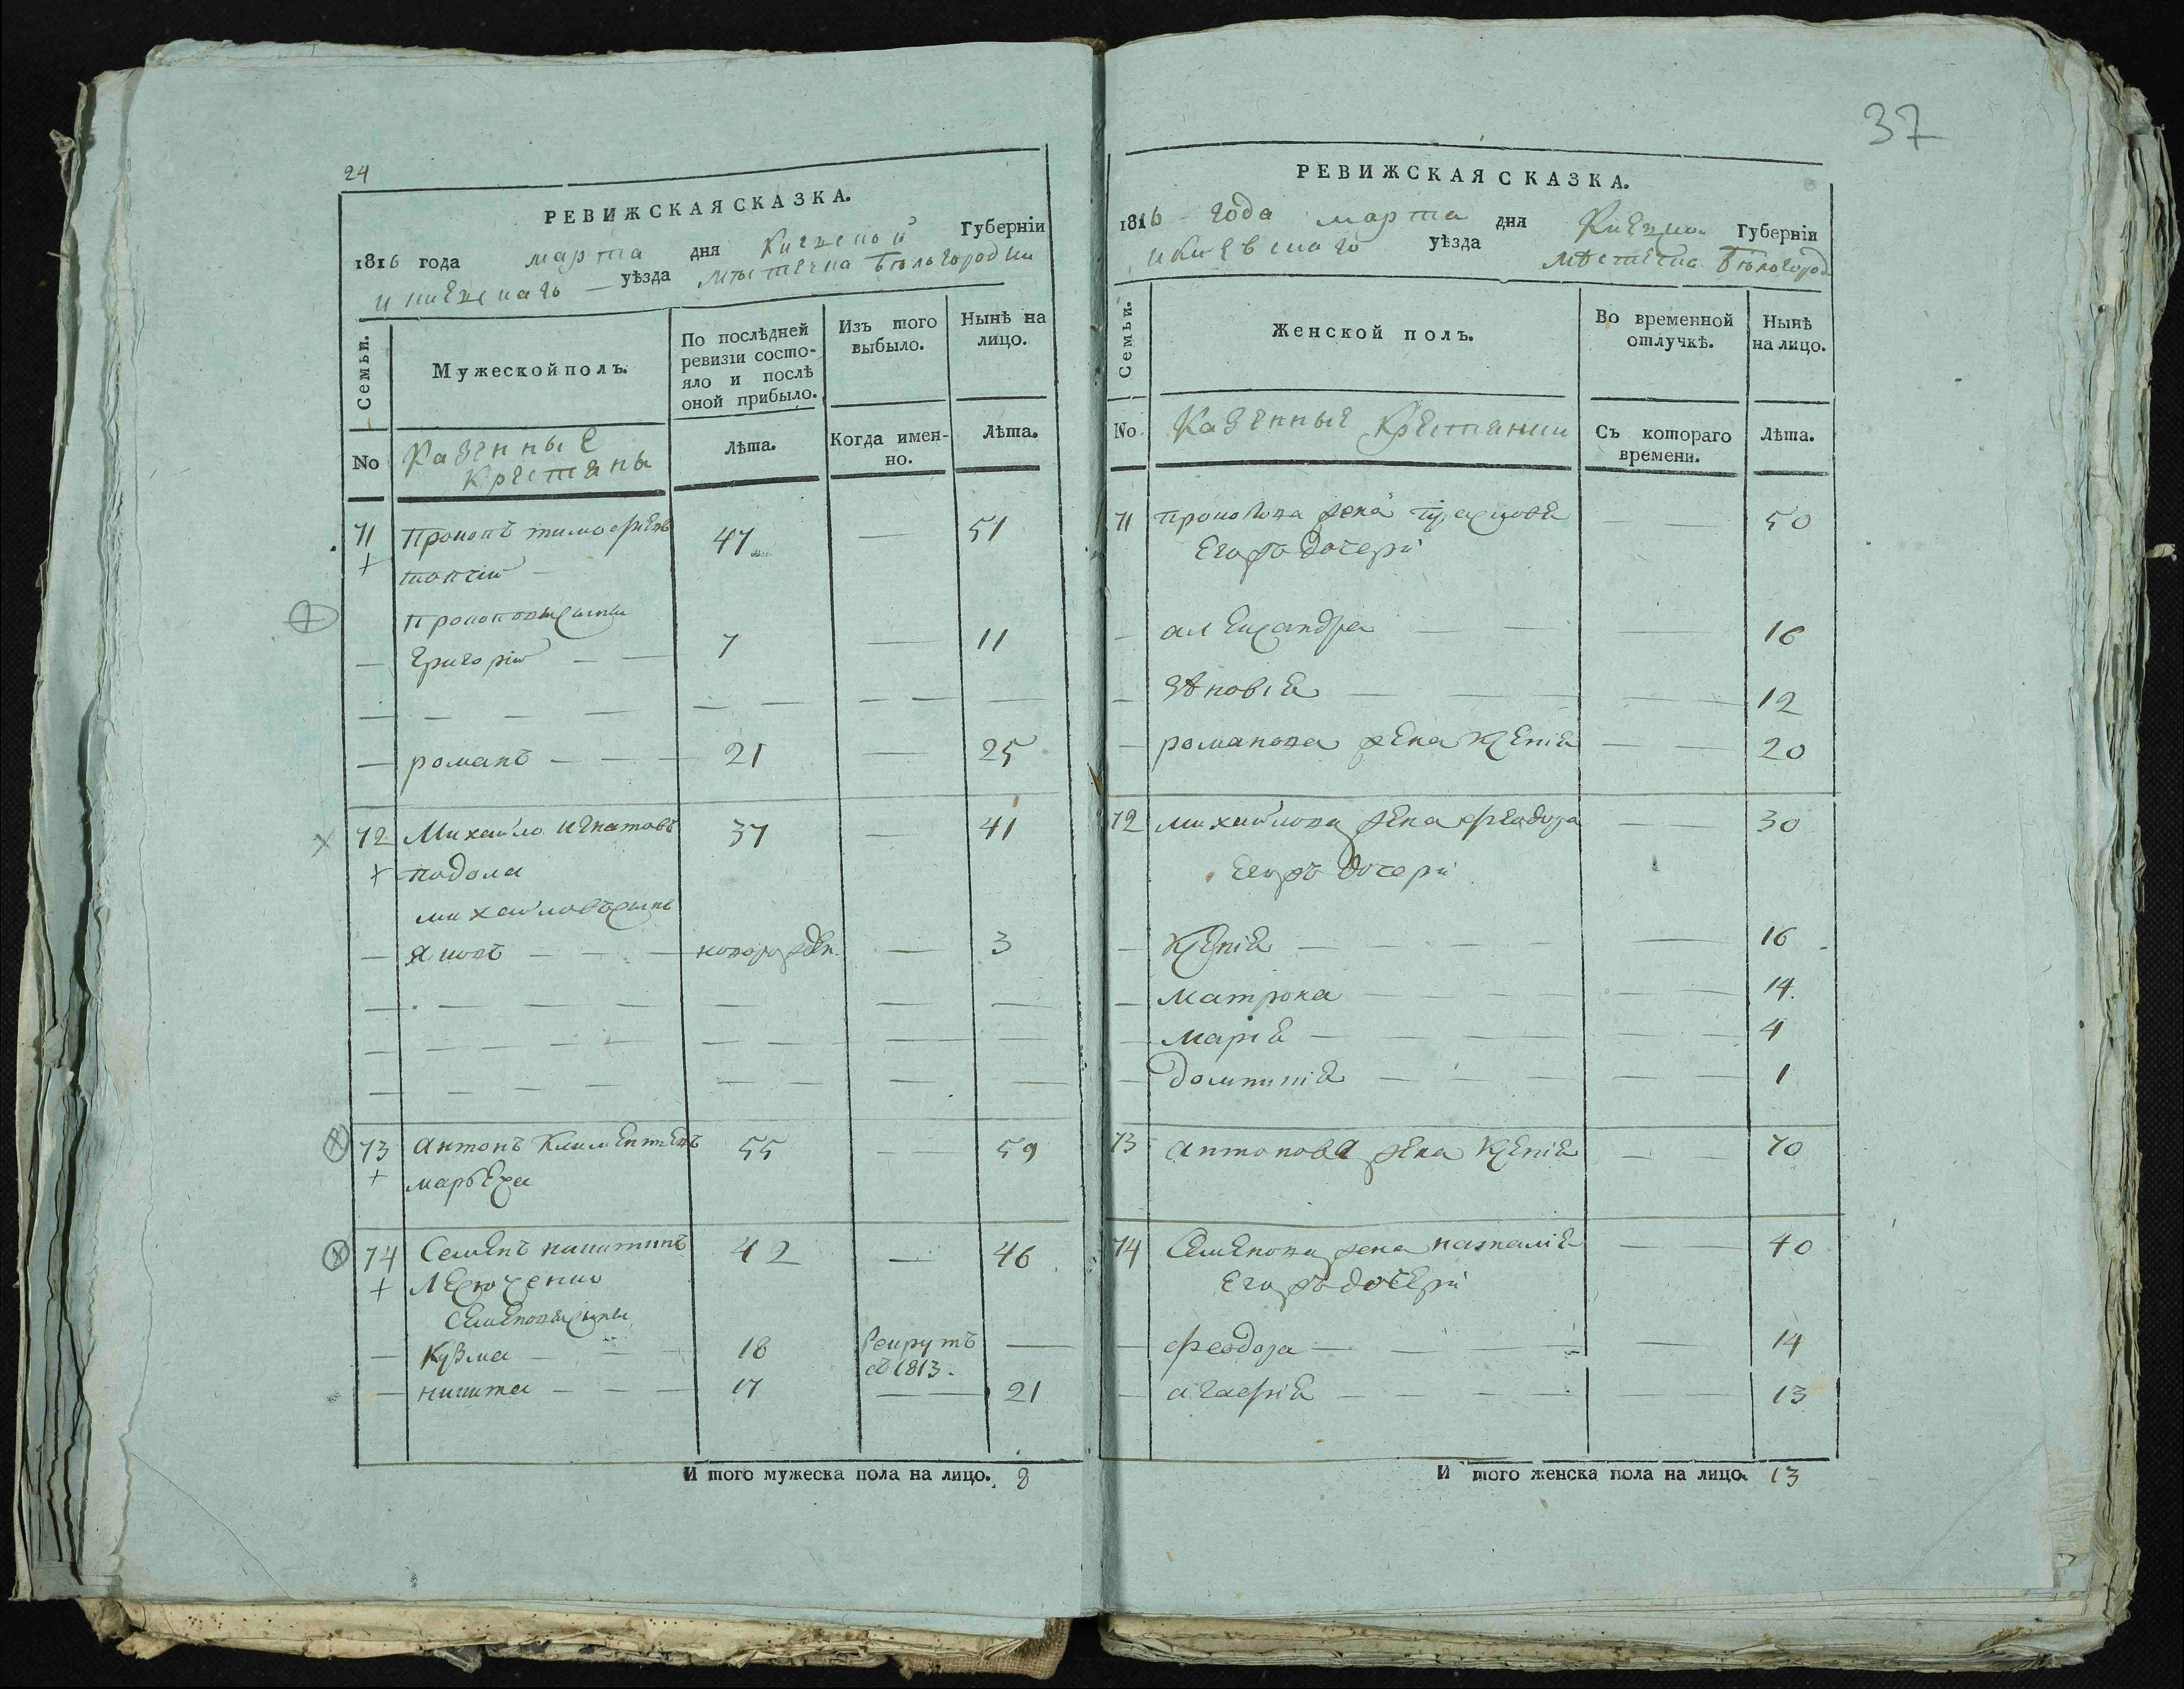 24
РЕВИЖСКАЯ СКАЗКА.
1816 года марта дня Киевской Губерніи
и киевскаго уѣзда мѣстечка Бѣлогородки
Семьи.
Мужеской полъ.
По послѣдней ревизіи состо-
яло и послѣ оной прибыло.
Изъ того выбыло.
Нынѣ на лицо.
No
Казенные
Крестяны
Лѣта.
Когда имен-
но.
Лѣта.
71 Прокопъ тимофѣевъ 47 — 51
+ топчій —
Прокоповы сыны
— григорій — — 7 — 11
— романъ — — — 21 — 25
72 Михайло игнатовъ 37 — 41
+ подола
михайловъ сынъ
— яковъ — — — новорожден. — 3
73 антонъ Климентевъ 55 — — 59
+
74 Семенъ никитинъ 42 — 46
+
Семеновы сыны
— Кузма — — — 18 Рекрутъ —
въ 1813.
— никита — — — 17 — 21
И того мужеска пола на лицо. 8
37
РЕВИЖСКАЯ СКАЗКА.
1816 года марта дня Киевской Губерніи
и Киевскаго уѣзда мѣстечка Бѣлогород
Семьи.
Женской полъ.
Во временной
отлучкѣ.
Нынѣ
на лицо.
No.
Казенные Крестянки
Съ котораго
времени.
Лѣта.
71 Прокопова жена — — 50
Егожъ дочери
— александра — — — 16
— зѣновія — — — 12
— романова жена Ксенія — — 20
72 михайлова жена феодора — — 30
Егожъ дочери
— Ксенія — — — 16
— матрона — — — 14
— марія — — — 4
— домникія — — — 1
73 антонова жена Ксенія — — 70
74 Семенова жена наталія — 40
Егожъ дочери
— феодора — — — 14
— агафія — — — 13
И того женска пола на лицо. 13